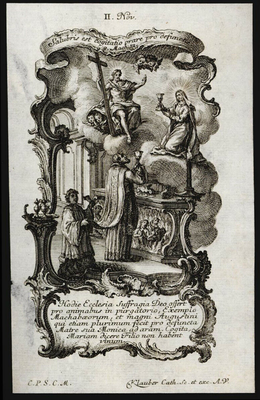 II. Nov.
Salubris est cogitatio orare pro defunctis
2. Mach. 12.
Hodie Ecclesia Suffragia Deo offert
pro animabus in purgatorio, Exemplo
Machabæorum, et magni Augustini
qui etiam plurimum fecit pro defuncta
Matre sua Monica ad aram. Cogita
Mariam dicere Filio non habent
vinum.
C. P. S. C. M.
Klauber Cath. Sc. et exc. A. V.